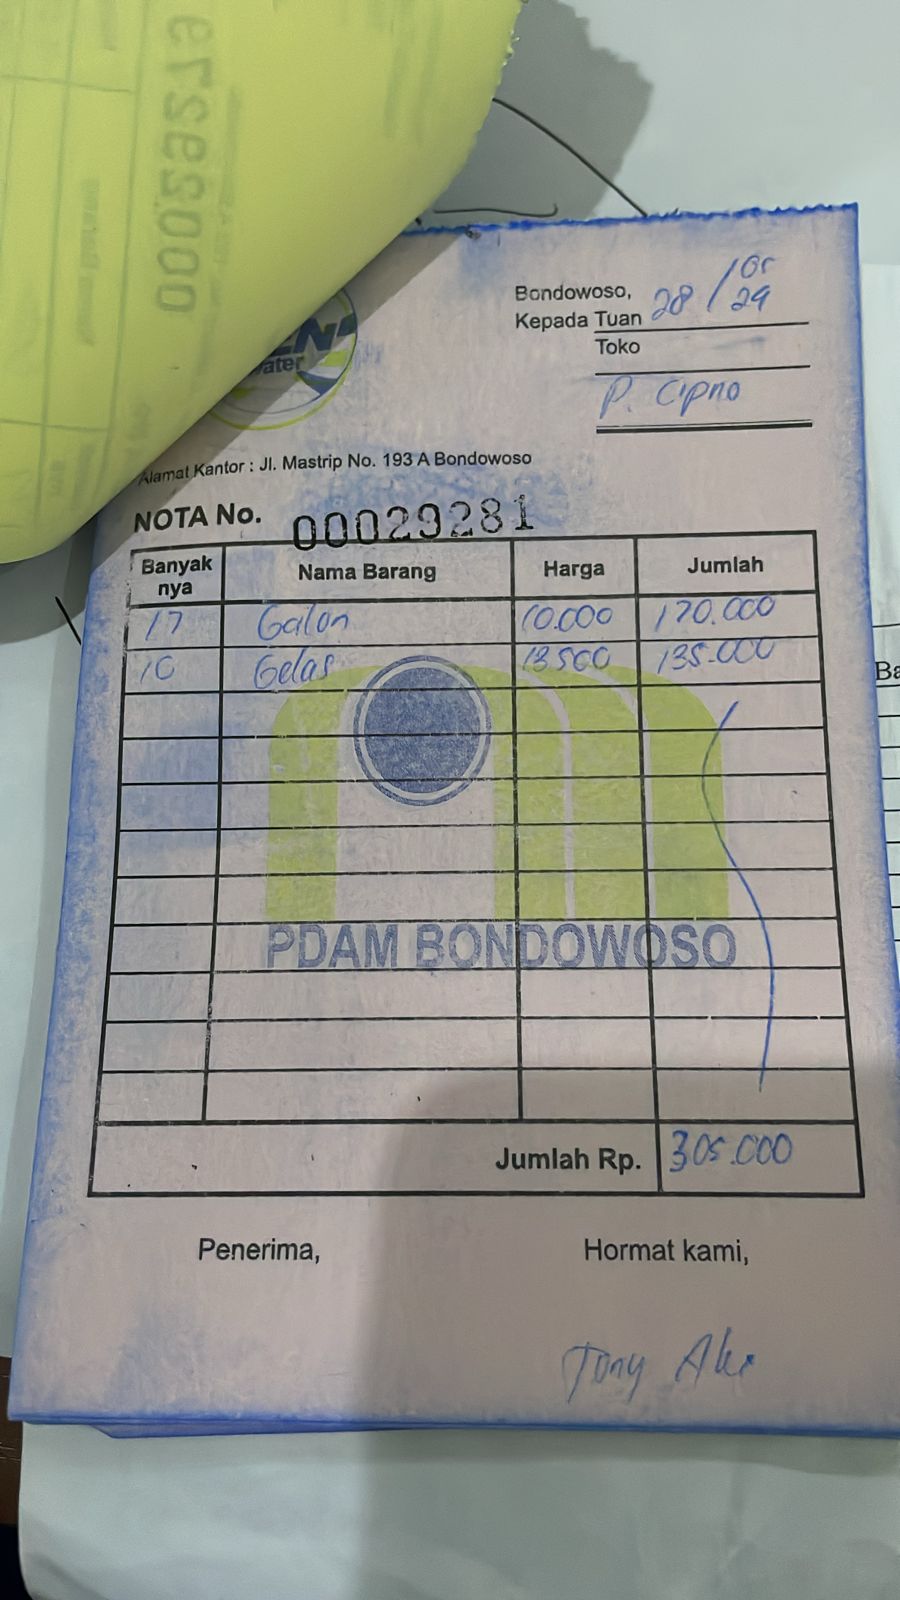 00029279
Bondowoso, 28/05/24
Kepada Tuan
Toko
P. Cipno
ater
Alamat Kantor : Jl. Mastrip No. 193 A Bondowoso
NOTA No. 00029281
Banyak nya Nama Barang Harga Jumlah
17 Galon 10.000 170.000
10 Gelas 13500 135.000
PDAM BONDOWOSO
Jumlah Rp. 305.000
Penerima, Hormat kami,
Tony